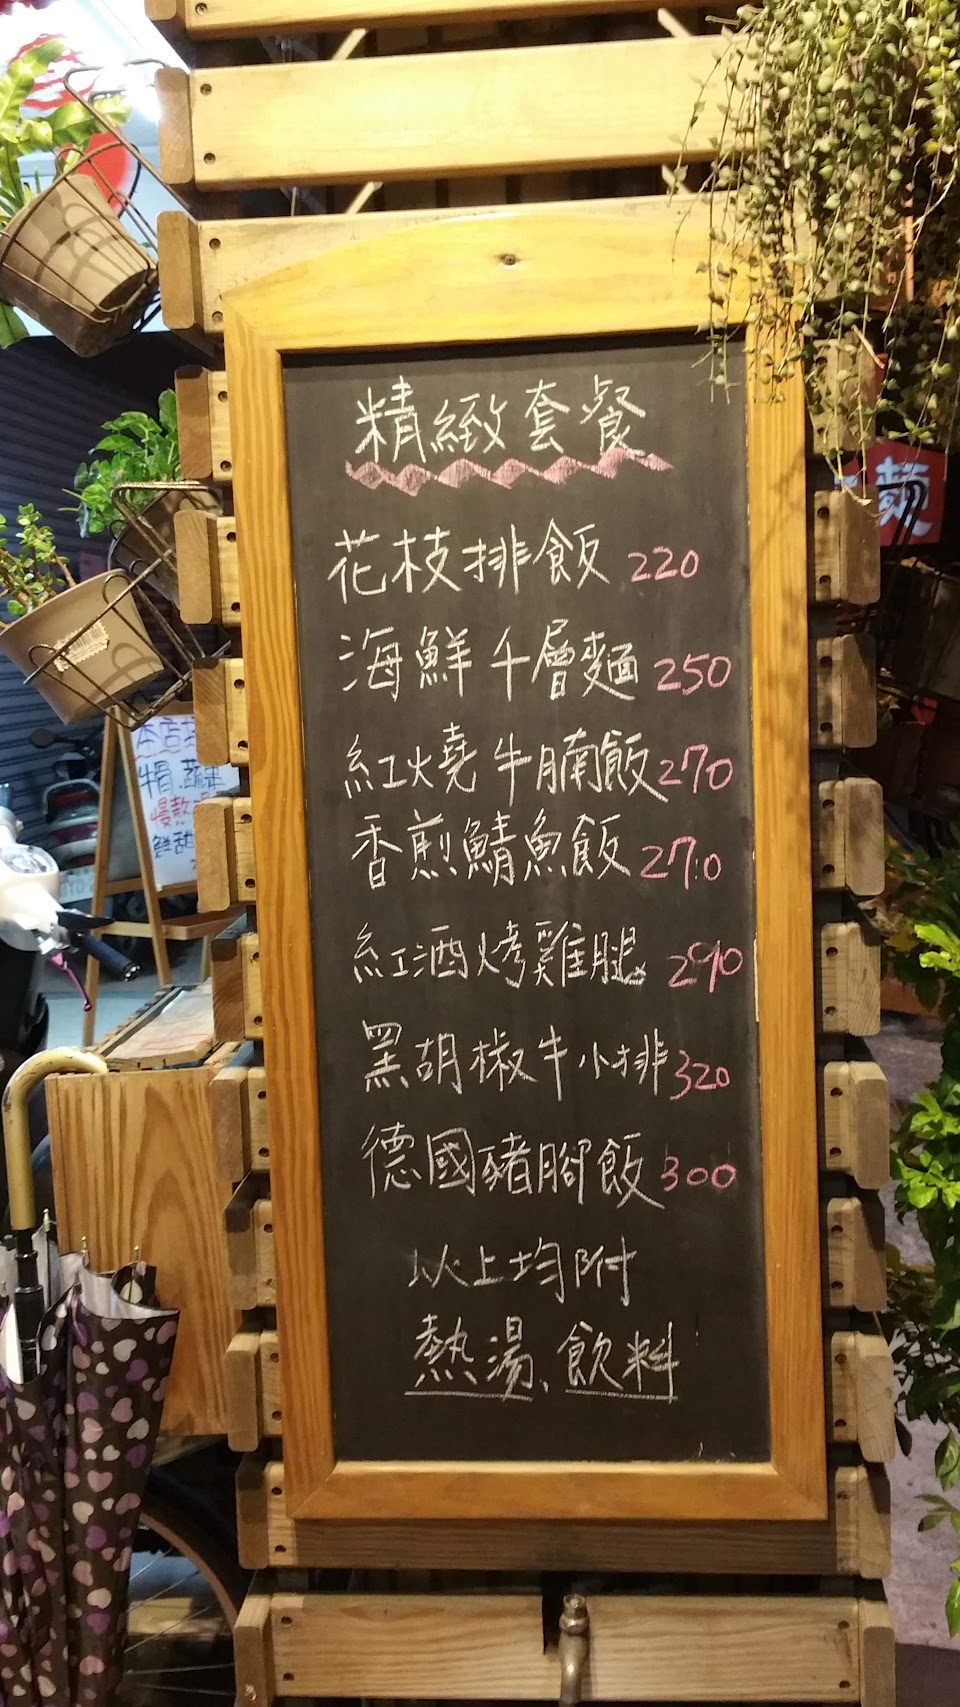 精緻套餐
花枝排飯 220
海鮮千層麵 250
紅燒牛腩飯 270
香煎鯖魚飯 270
紅酒烤雞腿 290
黑胡椒牛小排 320
德國豬腳飯 300
以上均附
熱湯、飲料
麵
本店
牛骨.蔬果
慢熬
鮮甜